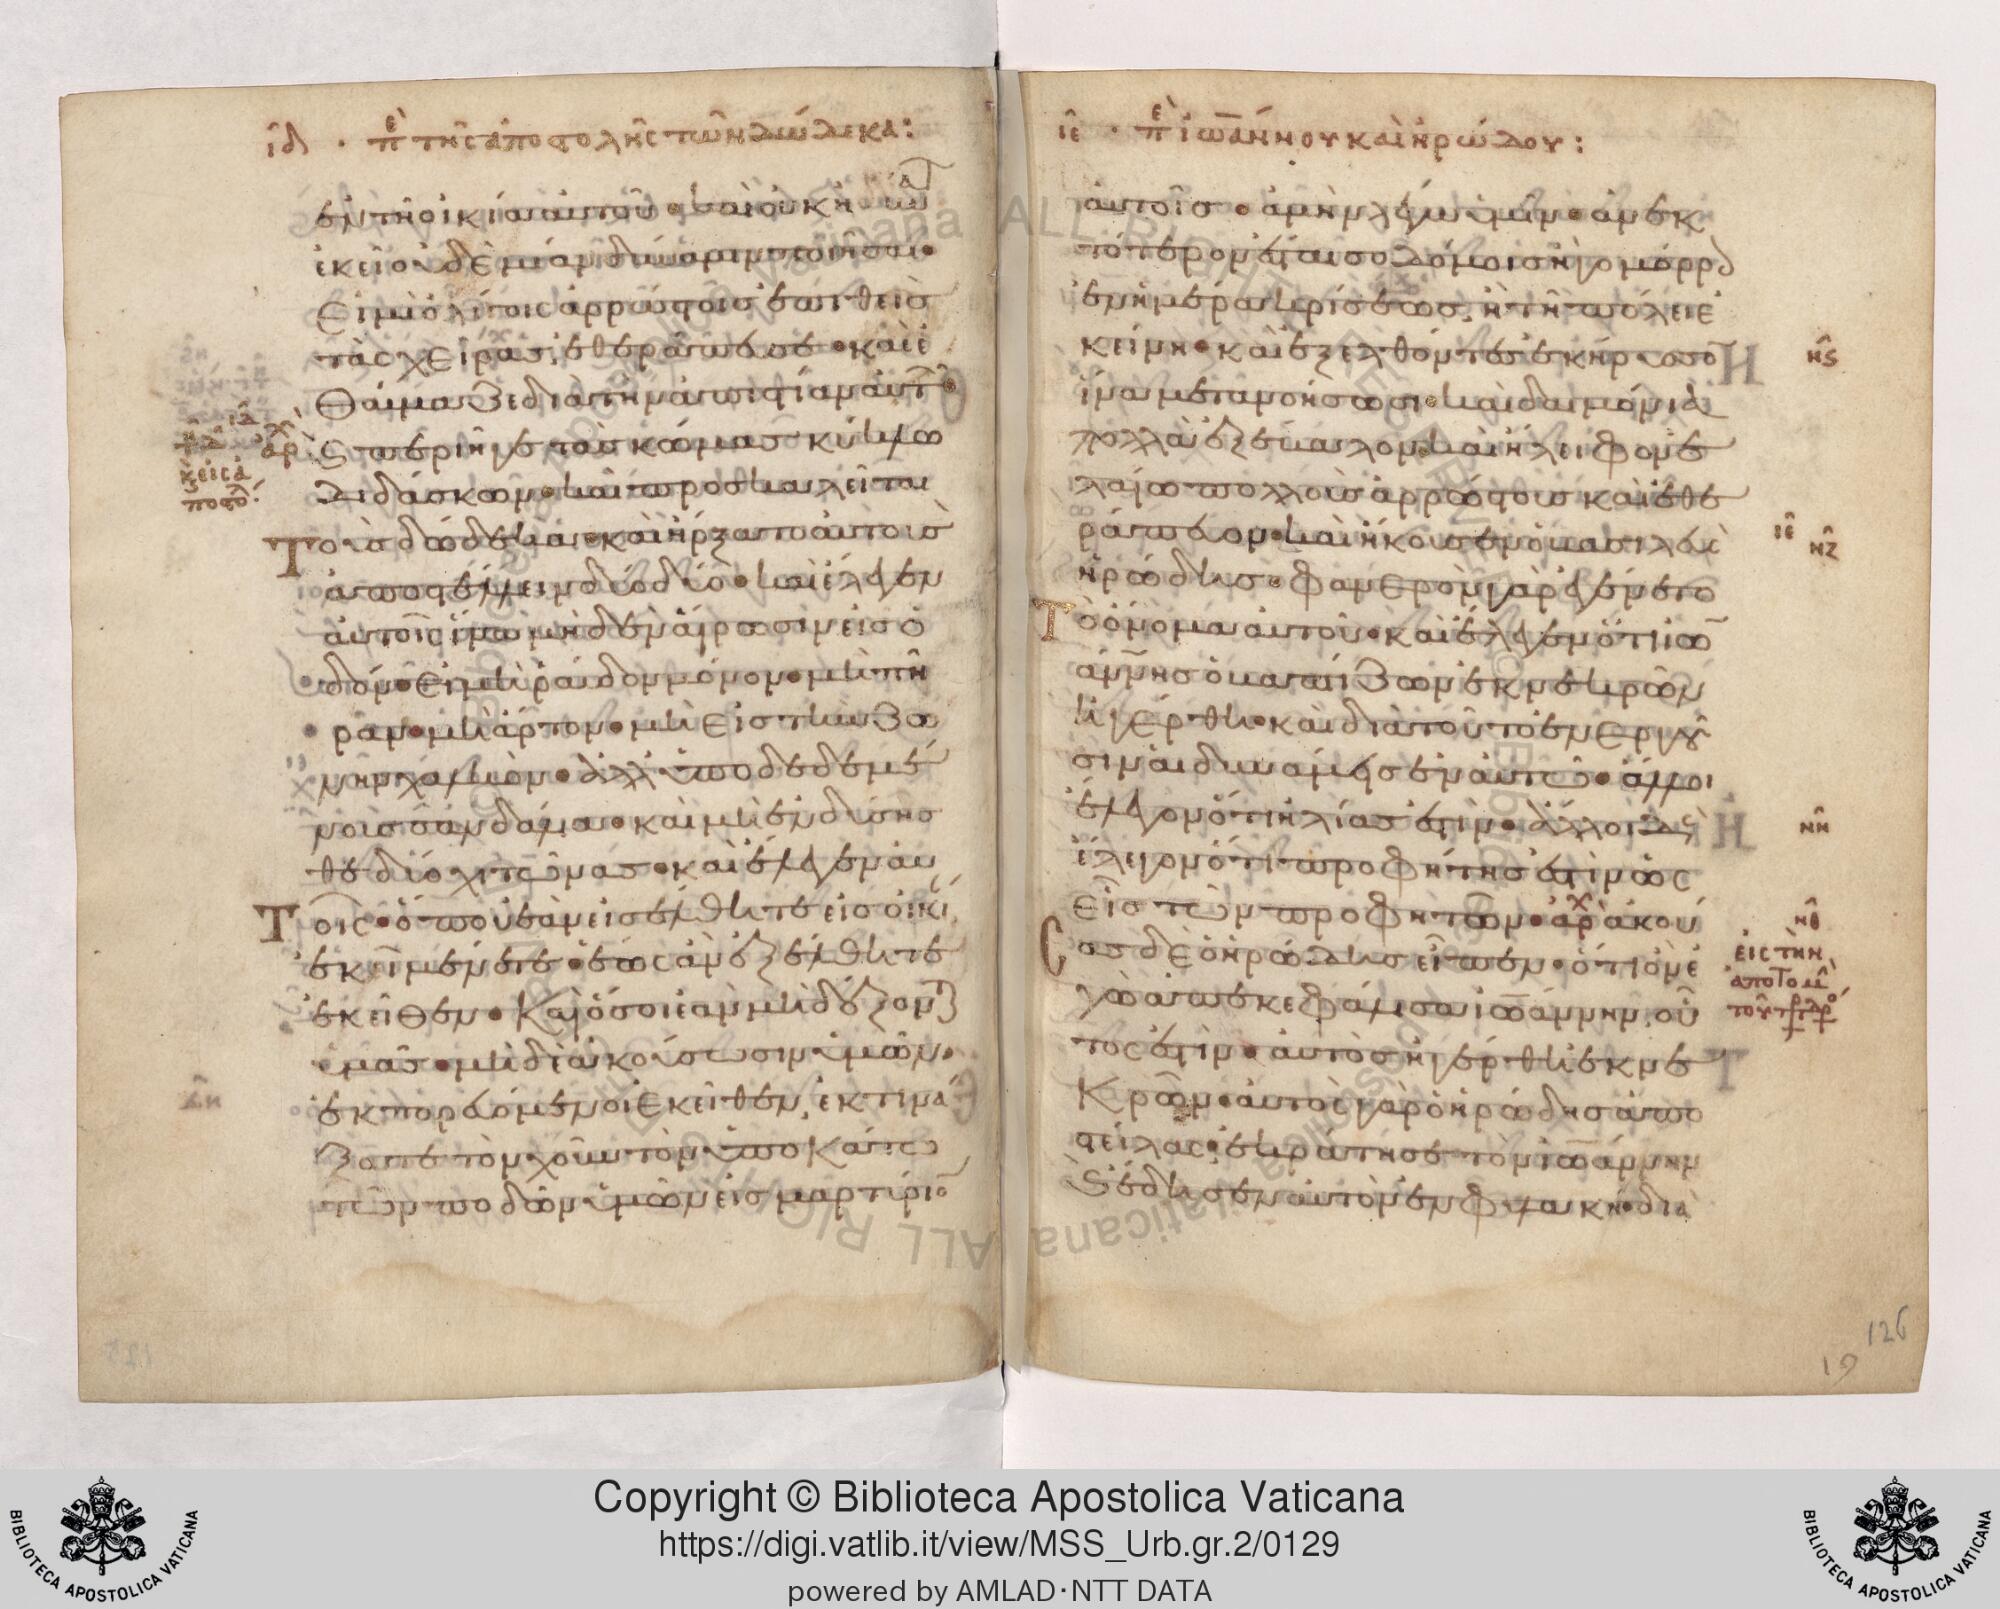 ιδ · περὶ τῆς ἀποστολῆς τῶν δώδεκα:
ἐν τῆ οἰκία αὐτοῦ · καὶ οὐκ ἠδύνατο
ἐκεῖ οὐδεμίαν δύναμιν ποιῆσαι ·
Εἰ μὴ ὀλίγοις ἀρρώστοις ἐπιθεὶς
τὰς χεῖρας, ἐθεράπευσε · καὶ ἐ
θαύμαζε διὰ τὴν ἀπιστίαν αὐτῶν ·
καὶ περιῆγε τὰς κώμας κύκλω
διδάσκων · καὶ προσκαλεῖται
Τοὺς δώδεκα · καὶ ἤρξατο αὐτοὺς
ἀποστέλλειν δύο δύο · καὶ ἔλεγεν
αὐτοῖς ἵνα μηδὲν αἴρωσιν εἰς ὁ
δόν · Εἰ μὴ ράβδον μόνον · μὴ πή
ραν · μὴ ἄρτον · μὴ εἰς τὴν ζώ
νην χαλκόν · ἀλλ' ὑποδεδεμέ
νους σανδάλια · καὶ μὴ ἐνδύση
σθε δύο χιτῶνας · καὶ ἔλεγεν αὐ
Τοῖς · ὅπου ἐὰν εἰσέλθητε εἰς οἰκί
ἐκεῖ μένετε · ἕως ἂν ἐξέλθητε
ἐκεῖθεν · Καὶ ὅσοι ἐὰν μὴ δέξον
ὑμᾶς · μὴ δὲ ἀκούσωσιν ὑμῶν ·
ἐκπορευόμενοι ἐκεῖθεν, ἐκτινά
ξατε τὸν χοῦν τὸν ὑποκάτω
τῶν ποδῶν ὑμῶν εἰς μαρτύριον
ιε · περὶ ἰωάννου καὶ ἡρώδου:
αὐτοῖς · ἀμὴν λέγω ὑμῖν · ἀνεκ
τότερον ἔσται σοδόμοις ἢ γομόρροις
ἐν ἡμέρα κρίσεως, ἢ τῆ πόλει ἐ
κείνη · καὶ ἐξελθόντες ἐκήρυσσον
ἵνα μετανοήσωσι · καὶ δαιμόνια
πολλὰ ἐξέβαλον · καὶ ἤλειφον ἐ
λαίω πολλοὺς ἀρρώστους καὶ ἐθε
ράπευον · καὶ ἤκουσεν ὁ βασιλεὺς
ἡρώδης · φανερὸν γὰρ ἐγένετο
Τὸ ὄνομα αὐτοῦ · καὶ ἔλεγεν ὅτι ἰω
άννης ὁ βαπτίζων ἐκ νεκρῶν
ἠγέρθη · καὶ διὰ τοῦτο ἐνεργοῦ
σιν αἱ δυνάμεις ἐν αὐτῶ · ἄλλοι
ἔλεγον ὅτι ἠλίας ἐστὶν · ἄλλοι δὲ
ἔλεγον ὅτι προφήτης ἐστὶν ὡς
εἷς τῶν προφητῶν · ἀκού
σας δὲ ὁ ἡρώδης εἶπεν · ὅτι ὃν ἐ
γὼ ἀπεκεφάλισα ἰωάννην, οὗ
τος ἐστὶν · αὐτὸς ἠγέρθη ἐκ νε
Κρῶν · αὐτὸς γὰρ ὁ ἡρώδης ἀπο
στείλας · ἐκράτησε τὸν ἰωάννην
καὶ ἔδησεν αὐτὸν ἐν φυλακῆ διὰ
νς
ιε
νζ
νη
νθ
εἰς τὴν
ἀποτομὴν
τοῦ
126
19
Copyright © Biblioteca Apostolica Vaticana
https://digi.vatlib.it/view/MSS_Urb.gr.2/0129
powered by AMLAD·NTT DATA
BIBLIOTECA APOSTOLICA VATICANA
BIBLIOTECA APOSTOLICA VATICANA